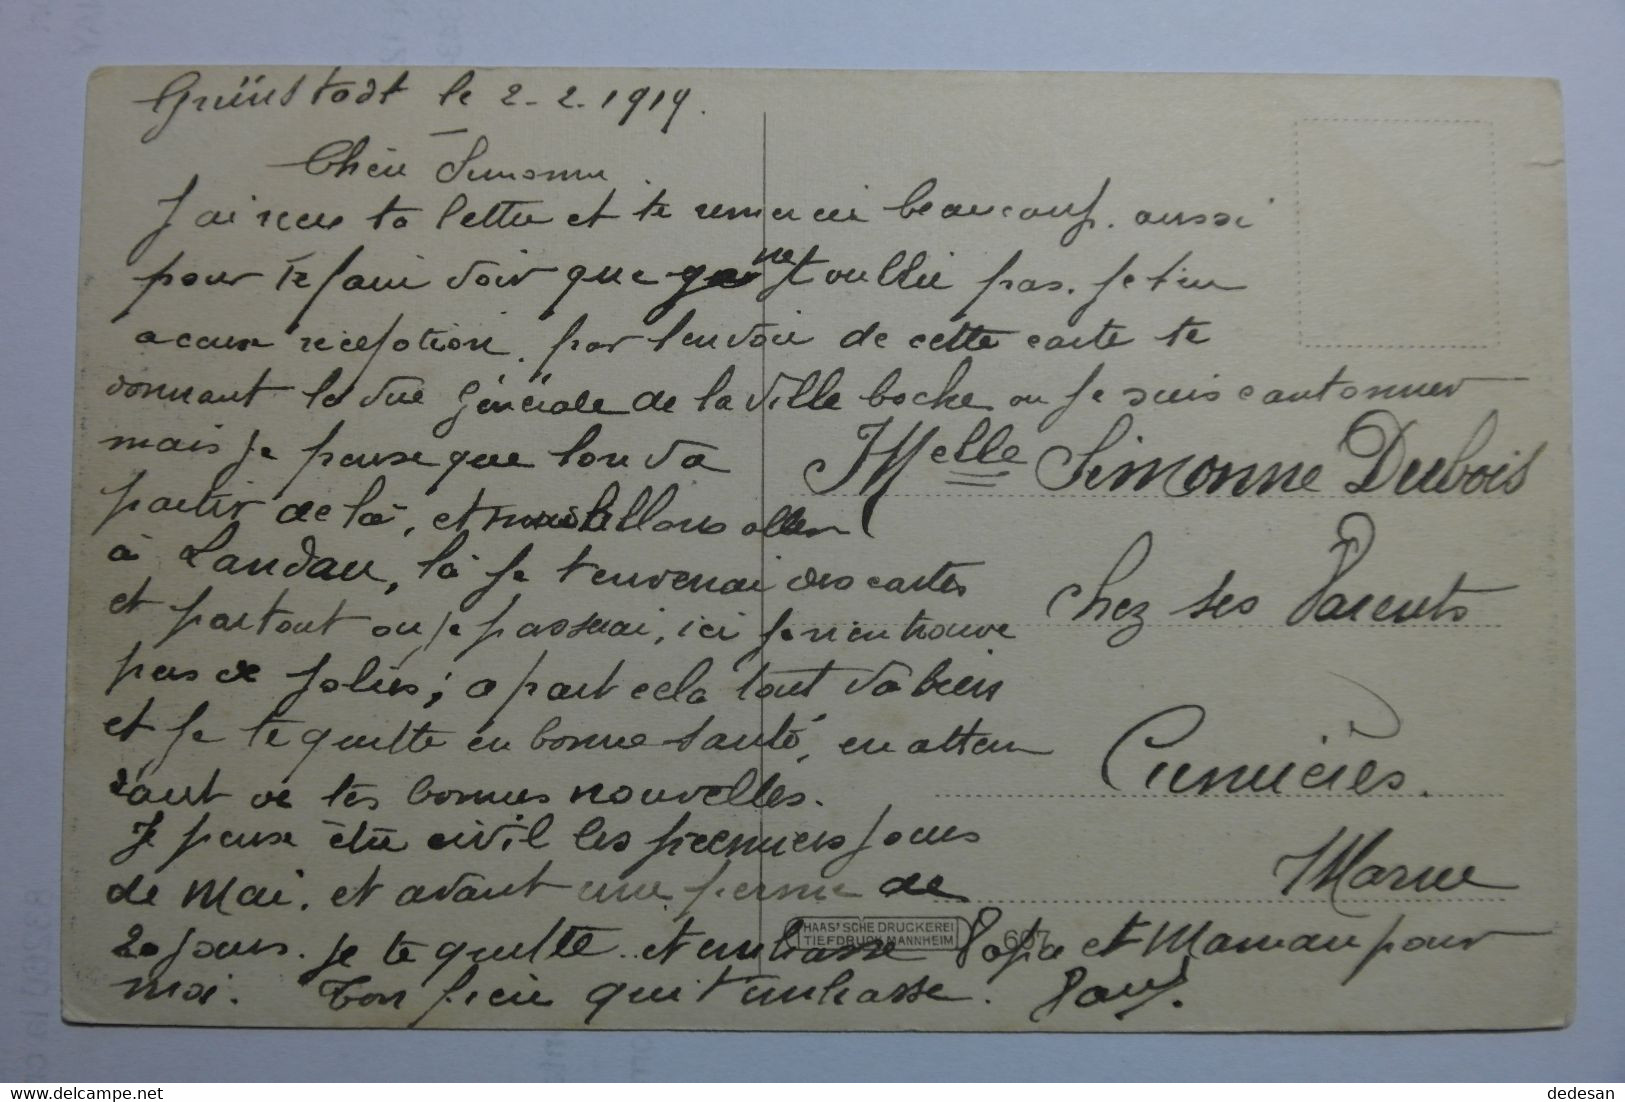 Grünstadt le 2-2-1919.
Chère Simonne.
J'ai recu ta lettre et te remercie beaucoup. aussi
pour te faire voir que ne t'oublie pas. Je t'en
accuse réception. par l'envoie de cette carte te
donnant la vue générale de la ville boche ou je suis cantonner
mais je pense que lon va
partir de là, et allons aller
à Landau, là je t'enverrai des cartes
et partout ou je passerai, ici je n'en trouve
pas de jolies; a part cela tout va bien
et je te quitte en bonne santé, en atten
dant de tes bonnes nouvelles.
Je pense être civil les premiers jours
de Mai. et avant une perme de
20 jours. je te quitte. et embrasse Papa et Maman pour
moi. Ton frère qui t'embrasse. Paul.
Melle Simonne Dubois
Chez ses Parents
Cumières.
Marne
HAAS'SCHE DRUCKEREI
TIEFDRUCK MANNHEIM
667
delcampe.net
dedesan